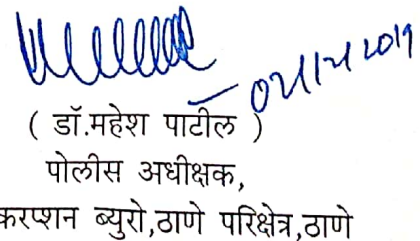 ( डॉ.महेश पाटील )
पोलीस अधीक्षक,
करप्शन ब्युरो,ठाणे परिक्षेत्र,ठाणे